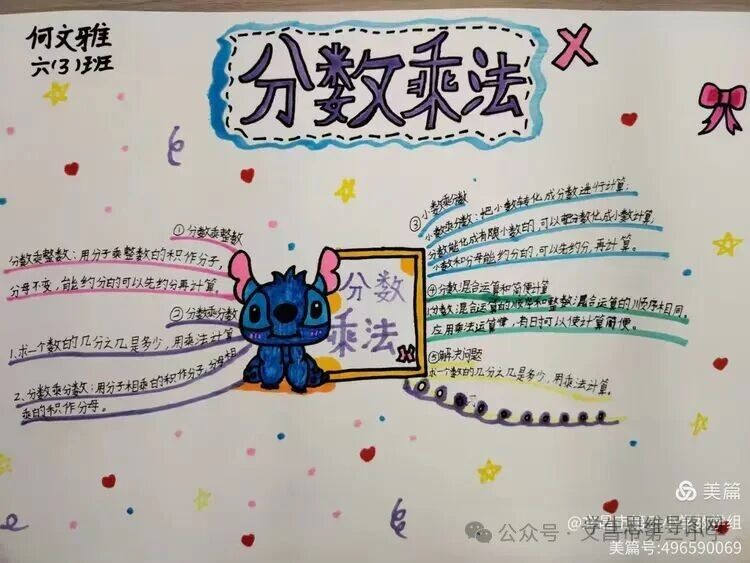 何文雅
六(3)班
分数乘法
①分数乘整数
分数乘整数:用分子乘整数的积作分子,
分母不变,能约分的可以先约分再计算。
②分数乘分数
1.求一个数的几分之几是多少,用乘法计算
2.分数乘分数:用分子相乘的积作分子,分母相
乘的积作分母。
分数
乘法
③小数乘分数
小数乘分数:把小数转化成分数进行计算;
分数能化成有限小数的,可以把分数化成小数计算,
小数和分母能约分的,可以先约分,再计算。
④分数混合运算和简便计算
分数混合运算的顺序和整数混合运算的顺序相同,
应用乘法运算律,有时可以使计算简便。
⑤解决问题
求一个数的几分之几是多少,用乘法计算。
美篇
公众号·
美篇号:496590069